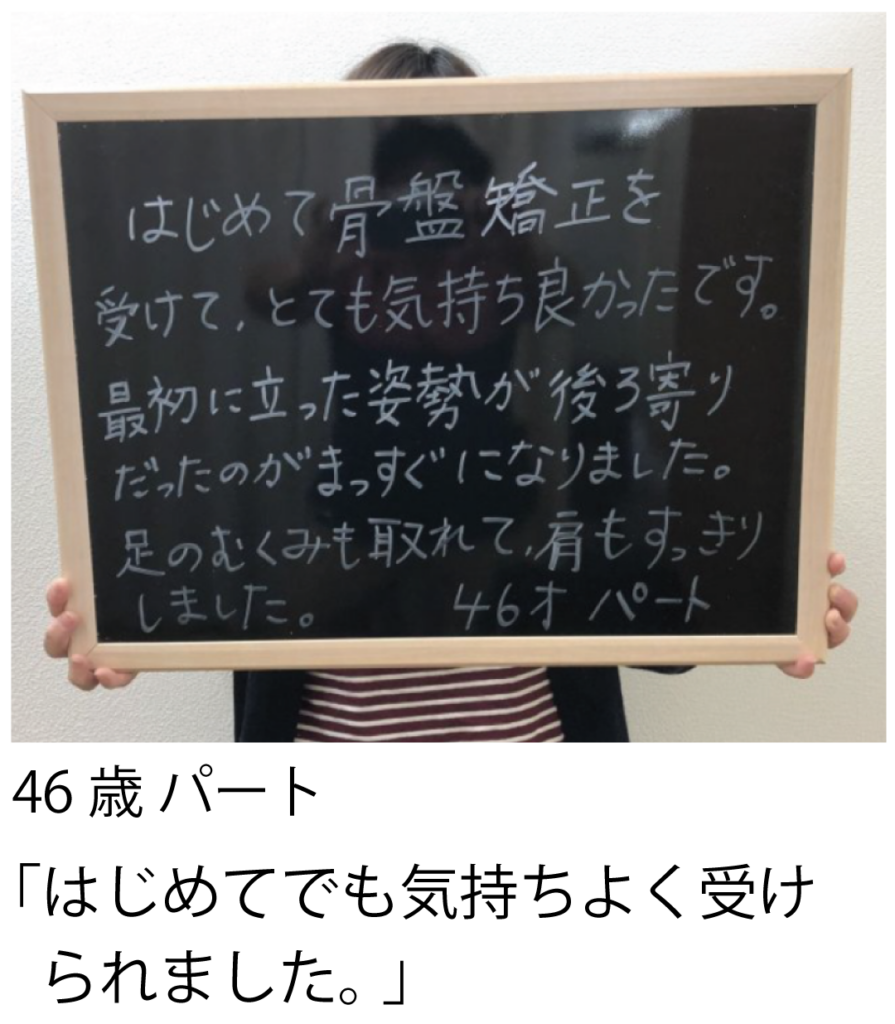 はじめて骨盤矯正を
受けて、とても気持ち良かったです。
最初に立った姿勢が後ろ寄り
だったのがまっすぐになりました。
足のむくみも取れて、肩もすっきり
しました。 46才 パート
46 歳 パート
「はじめてでも気持ちよく受け
られました。」